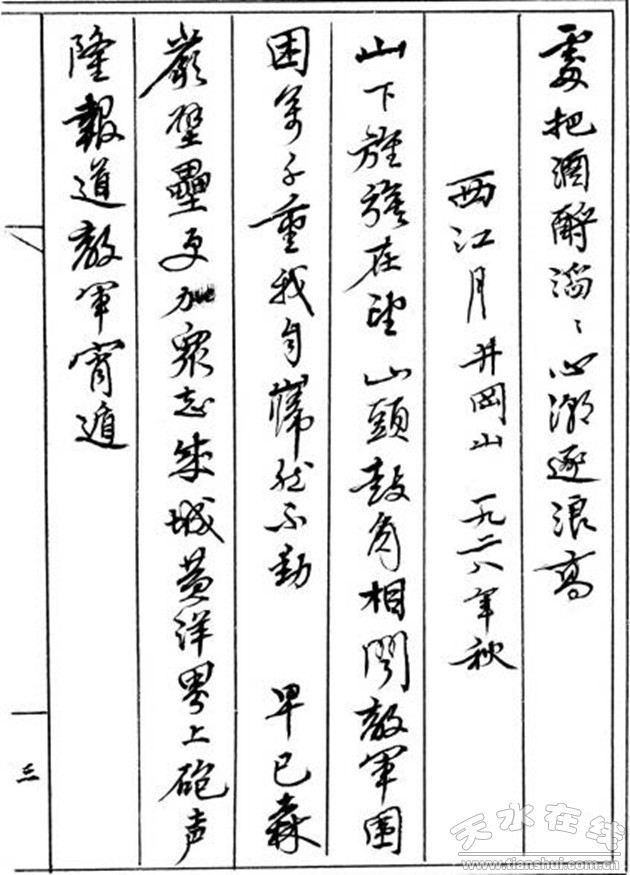 處把酒酹滔〻心潮逐浪高
西江月 井岡山 一九二八年秋
山下旌旗在望 山頭鼓角相聞敵軍圍
困萬千重我自巋然不動 早已森
嚴壁壘更加眾志成城黄洋界上砲声
隆報道敵軍宵遁
三
天水在线
www.tianshui.com.cn